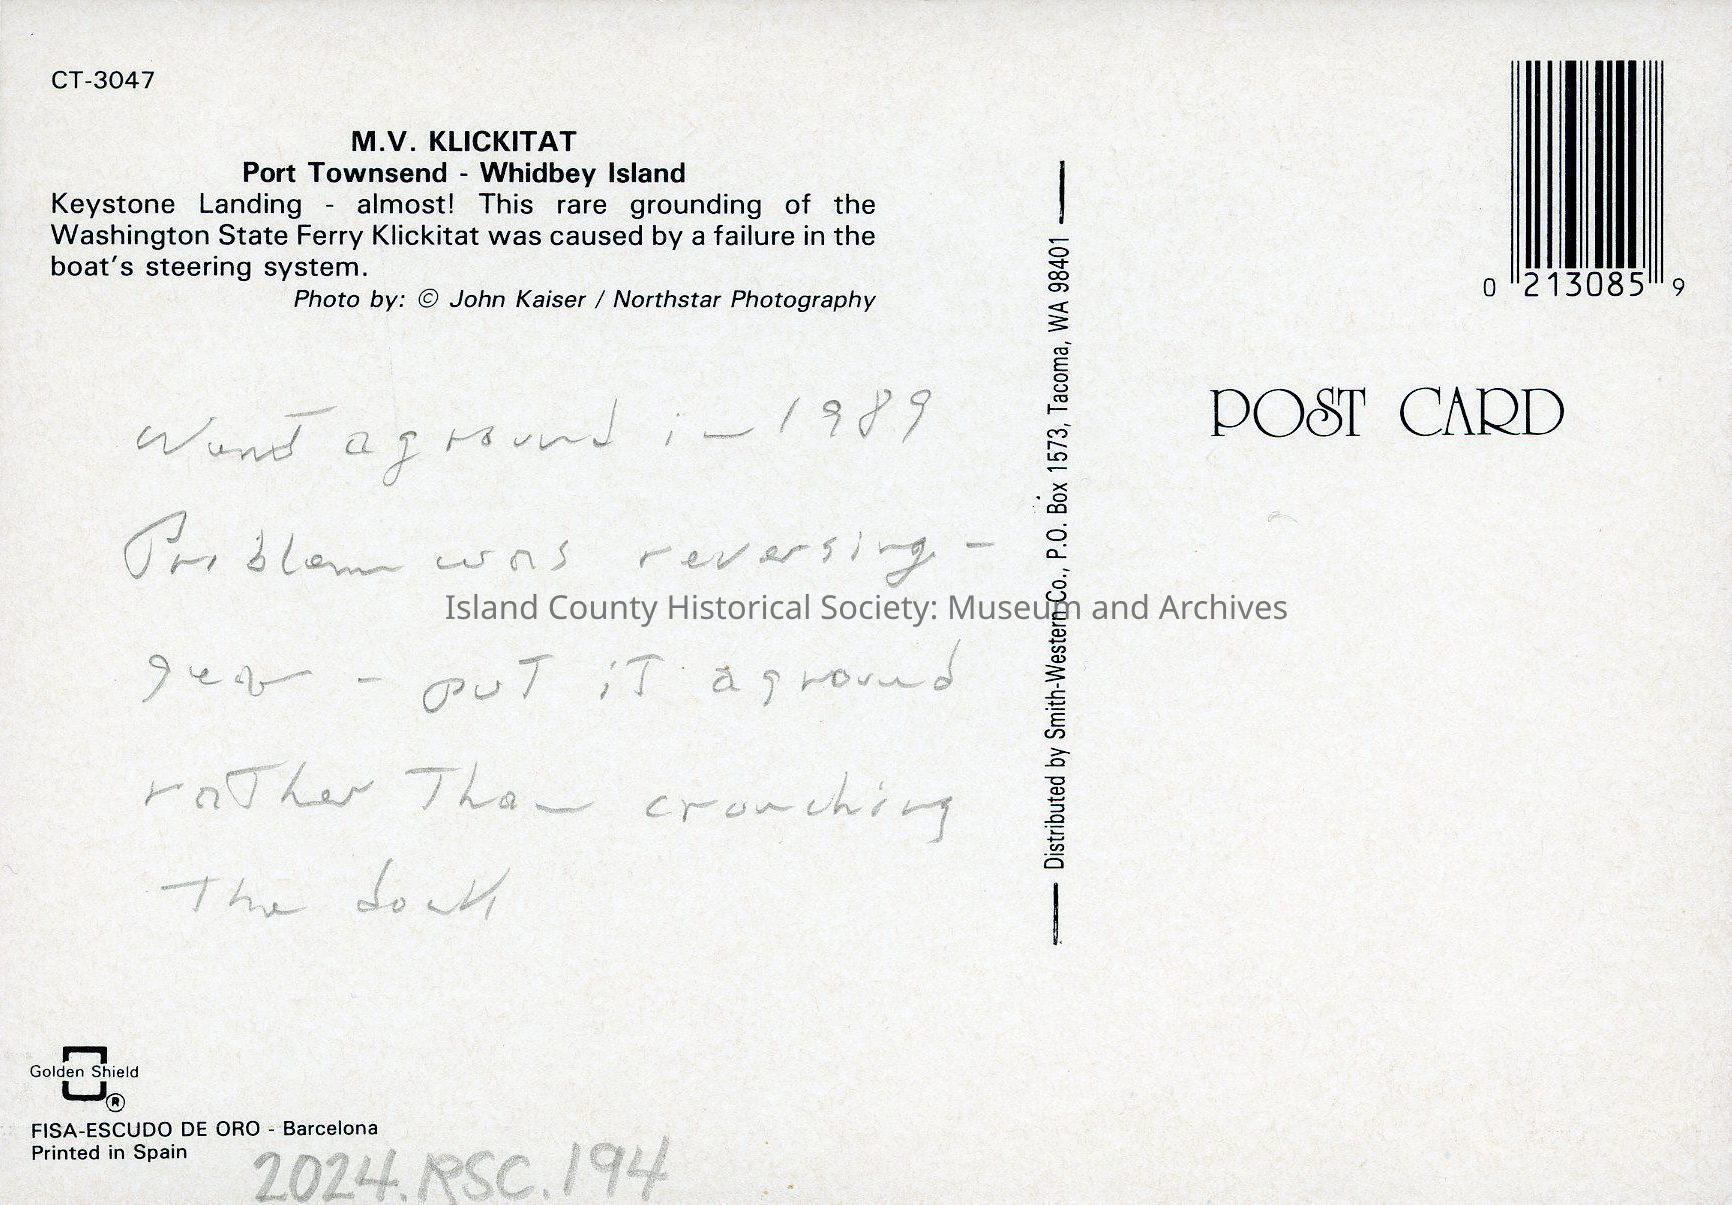 CT-3047
M.V. KLICKITAT
Port Townsend - Whidbey Island
Keystone Landing - almost! This rare grounding of the
Washington State Ferry Klickitat was caused by a failure in the
boat's steering system.
Photo by: © John Kaiser / Northstar Photography
Went aground in 1989
Problem was reversing -
gear - put it aground
rather than crunching
The dock
Golden Shield
®
FISA-ESCUDO DE ORO - Barcelona
Printed in Spain
2024.RSC.194
Distributed by Smith-Western Co., P.O. Box 1573, Tacoma, WA 98401
0 213085 9
POST CARD
Island County Historical Society: Museum and Archives